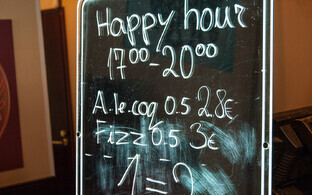 Happy hour
17⁰⁰-20⁰⁰
A.le.coq 0.5 2.8€
Fizz 0.5 3€
1=2